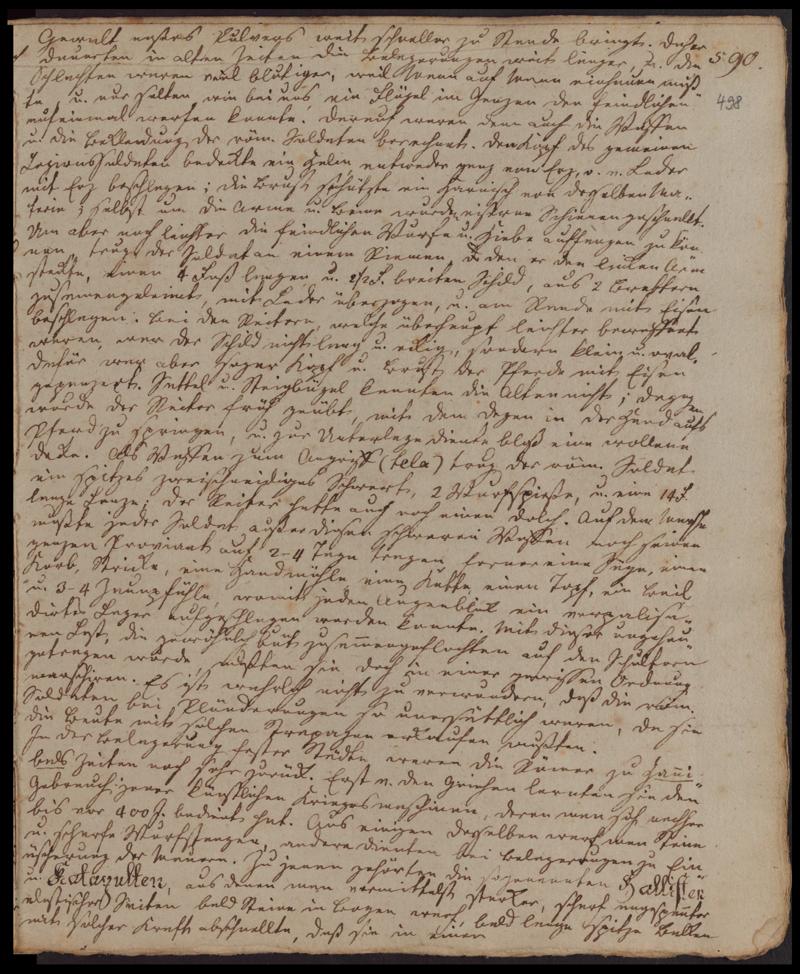 Gewalt unsers Pulvers weit schneller zu Stande bringt. Daher
590.
dauerten in alten Zeiten die Belagerungen weit länger, u. die
498
Schlachten waren viel blutiger, weil Mann auf Mann einhauen muß
te, u. nur selten, wie bei uns, ein Flügel im Ganzen den feindlichen
auf einmal werfen konnte. Darauf waren denn auch die Waffen
u. die Bekleidung der röm. Soldaten berechnet. Den Kopf des gemeinen
Legionssoldaten bedekte ein Helm entweder ganz von Erz, o. v. Leder
mit Erz beschlagen; die Brust schützte ein Harnisch von derselben Ma-
terie; selbst um die Arme u. Beine wurden eiserne Schienen geschnallt.
Um aber noch leichter die feindlichen Würfe u. Hiebe auffangen zu kön-
nen, trug der Soldat an einem Riemen, den er den linken Arm
stekte, einen 4 Fuß langen u. 2 1/2 F. breiten Schild, aus 2 Brettern
zusammengeleimt, mit Leder überzogen, u. am Rande mit Eisen
beschlagen. Bei den Reitern, welche überhaupt leichter bewaffnet
waren, war der Schild nicht lang u. ekig, sondern klein u. oval.
Dafür war aber sogar Kopf u. Brust der Pferde mit Eisen
gepanzert. Sattel u. Steigbügel kannten die Alten nicht; dagegen
wurde der Reiter früh geübt, mit dem Degen in der Hand aufs
Pferd zu springen, u. zur Unterlage diente bloß eine wollene
Deke. Als Waffen zum Angriff (tela) trug der röm. Soldat
ein spitzes zweischneidiges Schwert, 2 Wurfspieße, u. eine 14 F.
lange Lanze; der Reiter hatte auch noch einen Dolch. Auf dem Marsche
mußte jeder Soldat außer diesen schweren Waffen noch seinen
ganzen Proviant auf 2-4 Tage tragen, ferner eine Säge, einen
Korb, Stricke, eine Handmühle eine Kette einen Topf, ein Beil
u. 3-4 Zaunpfähle, womit jeden Augenblick ein verpalisa-
dirtes Lager aufgeschlagen werden konnte. Mit dieser ungeheu-
ren Last, die gewöhnlich zusammengeflochten auf den Schultern
getragen wurde, mußten sie doch in einer gewissen Ordnung
marschiren. Es ist wahrlich nicht zu verwundern, daß die röm.
Soldaten bei Plünderungen so unersättlich waren, da sie
die Beute mit solchen Strapazen erkaufen mußten.
In der Belagerung fester Städte waren die Römer zu Hanni-
bals Zeiten noch sehr zurück. Erst v. den Griechen lernten sie den
Gebrauch jener künstlichen Kriegsmaschinen, deren man sich nachher
bis vor 400 J. bedient hat. Aus einigen derselben warf man Steine
u. scharfe Wurfstangen, andere dienten bei Belagerungen zu Ein-
äscherung der Mauern. Zu jenen gehörten die sogenannten Ballisten
u. Katapulten, aus denen man vermittelst starker, scharf angespannter
elastischer Saiten bald Steine in Bogen warf, bald lange spitze Balken
mit solcher Kraft abschnellte, daß sie in einer